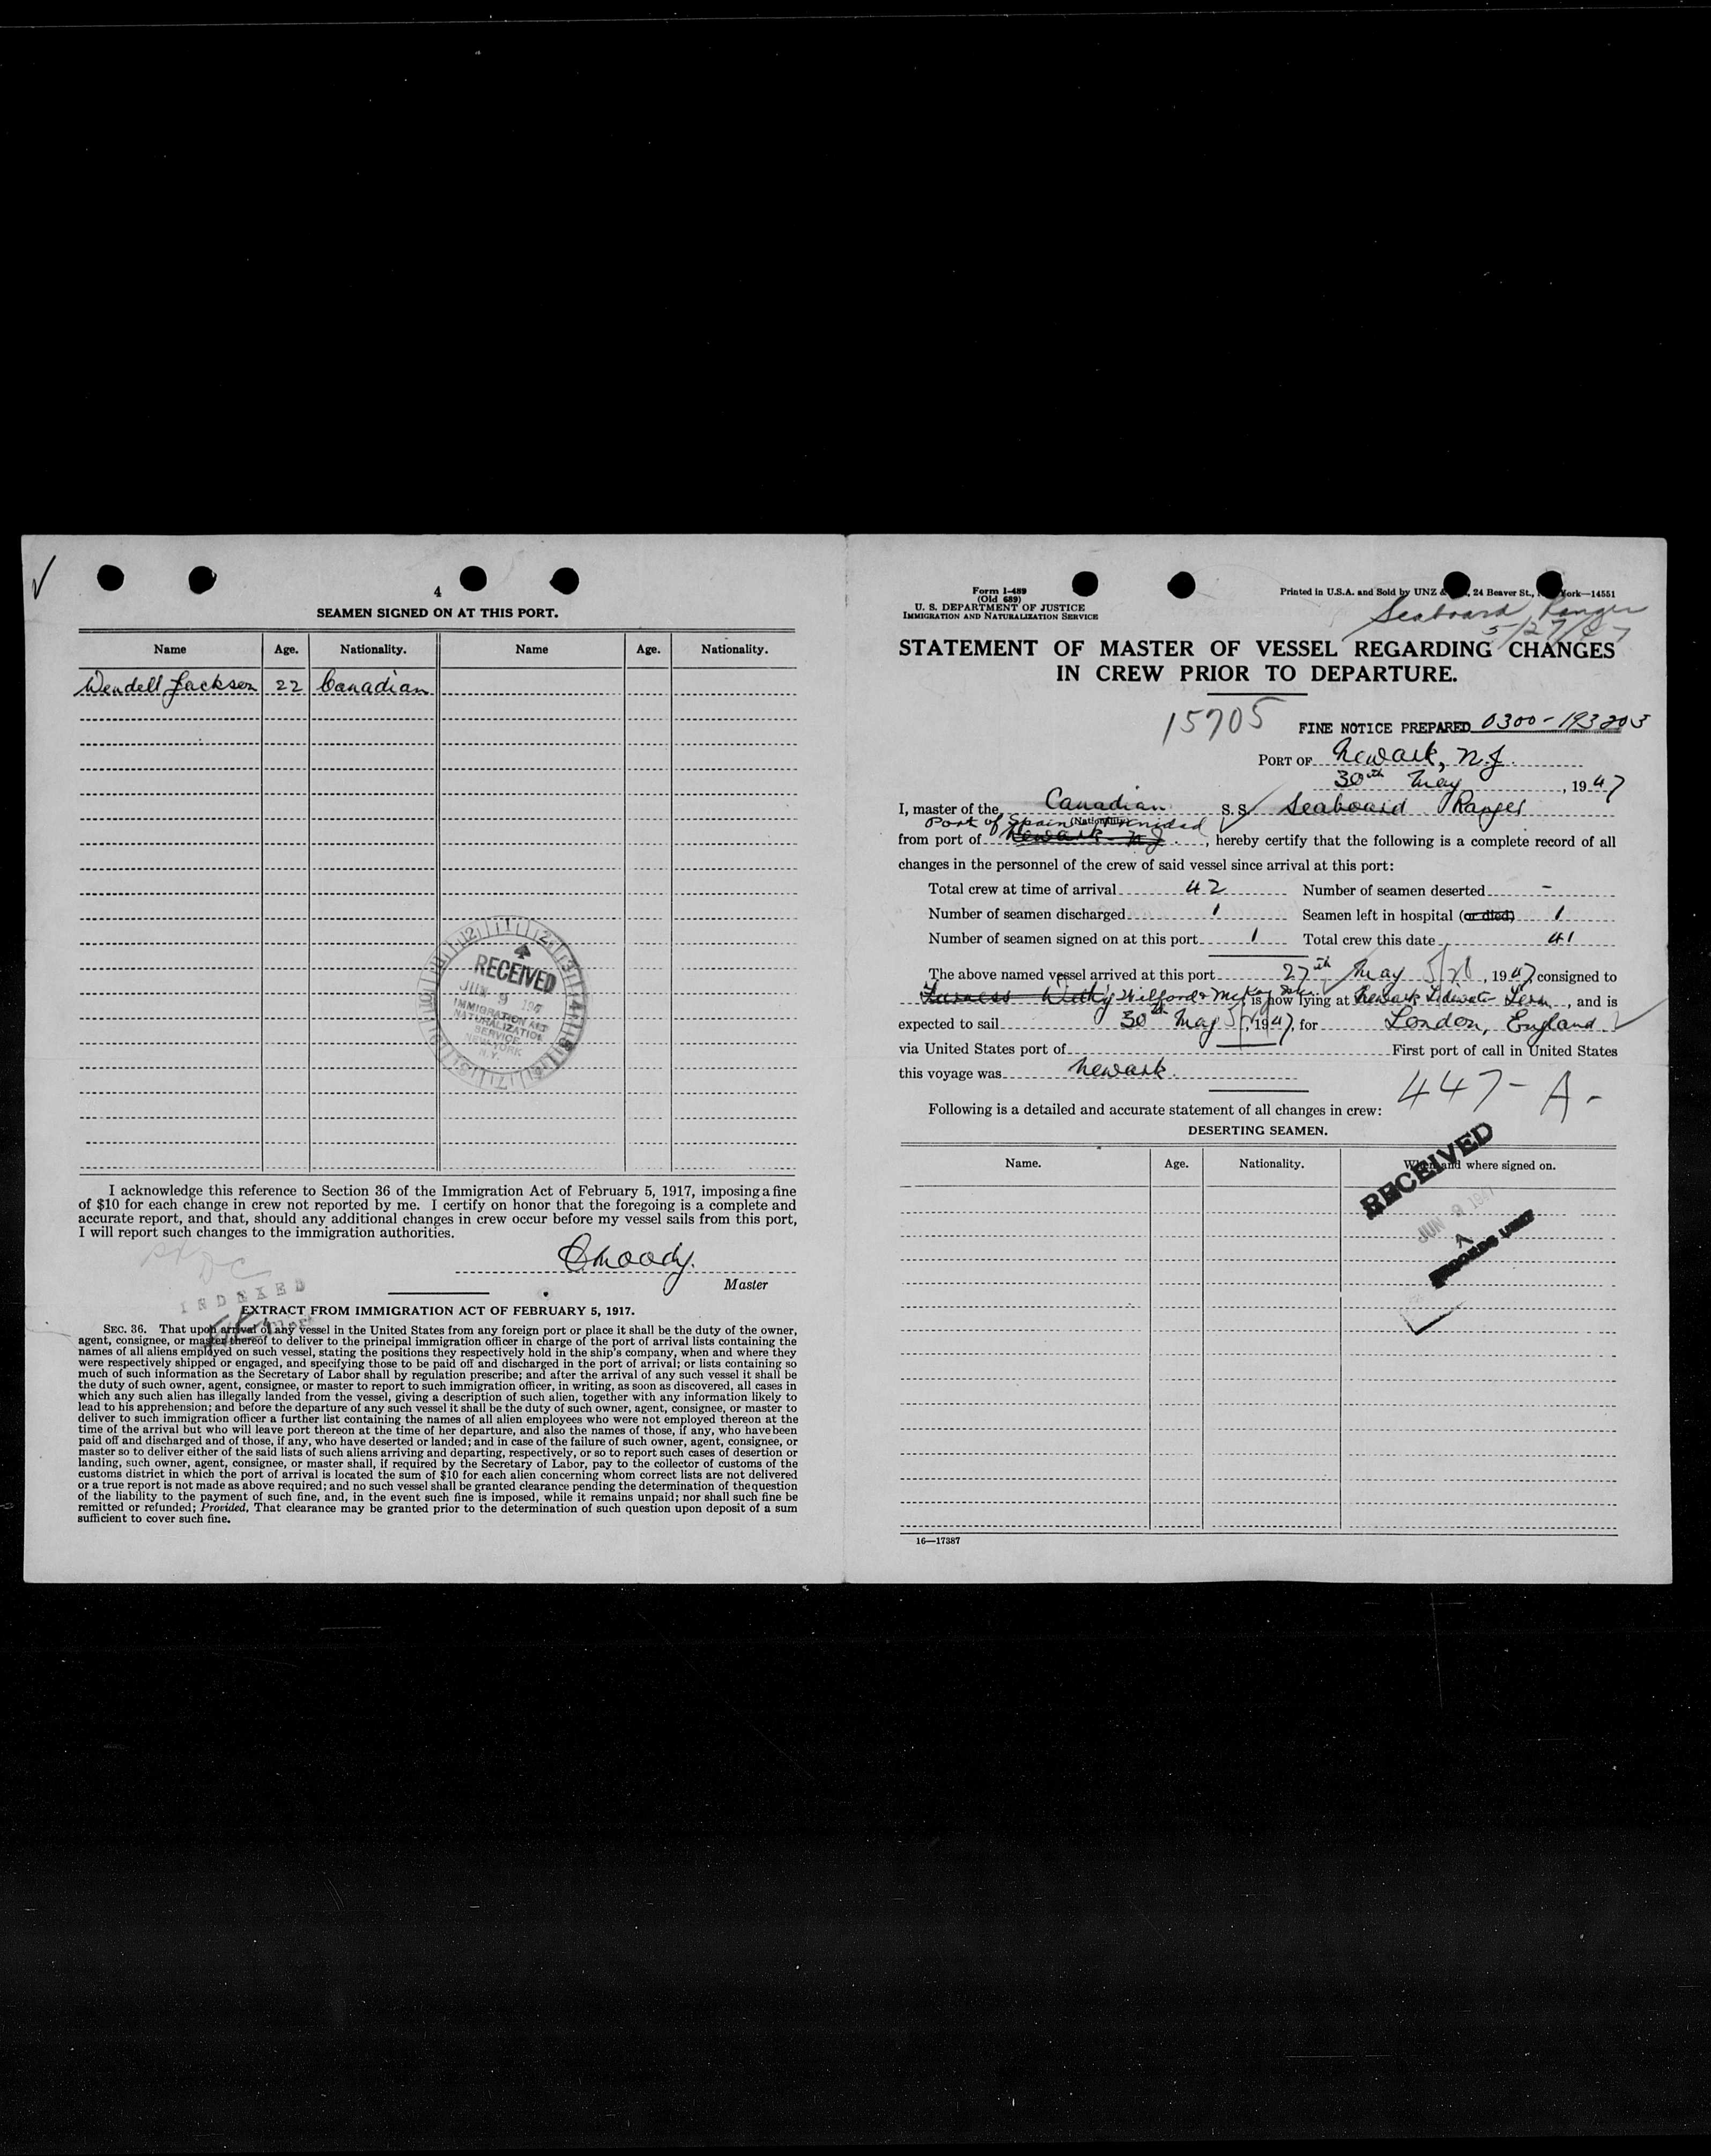 4
SEAMEN SIGNED ON AT THIS PORT.
Name Age. Nationality. Name Age. Nationality.
Wendell Jackson 22 Canadian
RECEIVED
JUN 9 194
IMMIGRATION AND
NATURALIZATION
SERVICE
NEW YORK
N.Y.
I acknowledge this reference to Section 36 of the Immigration Act of February 5, 1917, imposing a fine
of $10 for each change in crew not reported by me. I certify on honor that the foregoing is a complete and
accurate report, and that, should any additional changes in crew occur before my vessel sails from this port,
I will report such changes to the immigration authorities.
Moody.
Master
INDEXED
EXTRACT FROM IMMIGRATION ACT OF FEBRUARY 5, 1917.
SEC. 36. That upon arrival of any vessel in the United States from any foreign port or place it shall be the duty of the owner,
agent, consignee, or master thereof to deliver to the principal immigration officer in charge of the port of arrival lists containing the
names of all aliens employed on such vessel, stating the positions they respectively hold in the ship's company, when and where they
were respectively shipped or engaged, and specifying those to be paid off and discharged in the port of arrival; or lists containing so
much of such information as the Secretary of Labor shall by regulation prescribe; and after the arrival of any such vessel it shall be
the duty of such owner, agent, consignee, or master to report to such immigration officer, in writing, as soon as discovered, all cases in
which any such alien has illegally landed from the vessel, giving a description of such alien, together with any information likely to
lead to his apprehension; and before the departure of any such vessel it shall be the duty of such owner, agent, consignee, or master to
deliver to such immigration officer a further list containing the names of all alien employees who were not employed thereon at the
time of the arrival but who will leave port thereon at the time of her departure, and also the names of those, if any, who have been
paid off and discharged and of those, if any, who have deserted or landed; and in case of the failure of such owner, agent, consignee, or
master so to deliver either of the said lists of such aliens arriving and departing, respectively, or so to report such cases of desertion or
landing, such owner, agent, consignee, or master shall, if required by the Secretary of Labor, pay to the collector of customs of the
customs district in which the port of arrival is located the sum of $10 for each alien concerning whom correct lists are not delivered
or a true report is not made as above required; and no such vessel shall be granted clearance pending the determination of the question
of the liability to the payment of such fine, and, in the event such fine is imposed, while it remains unpaid; nor shall such fine be
remitted or refunded; Provided, That clearance may be granted prior to the determination of such question upon deposit of a sum
sufficient to cover such fine.
Form I-489
(Old 689)
U. S. DEPARTMENT OF JUSTICE
IMMIGRATION AND NATURALIZATION SERVICE
Printed in U.S.A. and Sold by UNZ & 24 Beaver St., York—14551
Seaboard Ranger
5/27/47
STATEMENT OF MASTER OF VESSEL REGARDING CHANGES
IN CREW PRIOR TO DEPARTURE.
15705
FINE NOTICE PREPARED 0300-193203
PORT OF Newark, N.J.
30th May, 1947
I, master of the Canadian S. S. Seaboard Ranger
Port of Spain Trinidad (Nationality)
from port of Newark N J., hereby certify that the following is a complete record of all
changes in the personnel of the crew of said vessel since arrival at this port:
Total crew at time of arrival 42 Number of seamen deserted -
Number of seamen discharged 1 Seamen left in hospital (or died) 1
Number of seamen signed on at this port 1 Total crew this date 41
The above named vessel arrived at this port 27th May, 1947, consigned to
Furness Withy Wilford & McKay, is now lying at Newark Tidewater Term, and is
expected to sail 30th May, 1947, for London, England.
via United States port of First port of call in United States
this voyage was Newark.
447-A-
Following is a detailed and accurate statement of all changes in crew:
DESERTING SEAMEN.
Name. Age. Nationality. When and where signed on.
RECEIVED
JUN 9 1947
A
RECORDS UNIT
16—17387